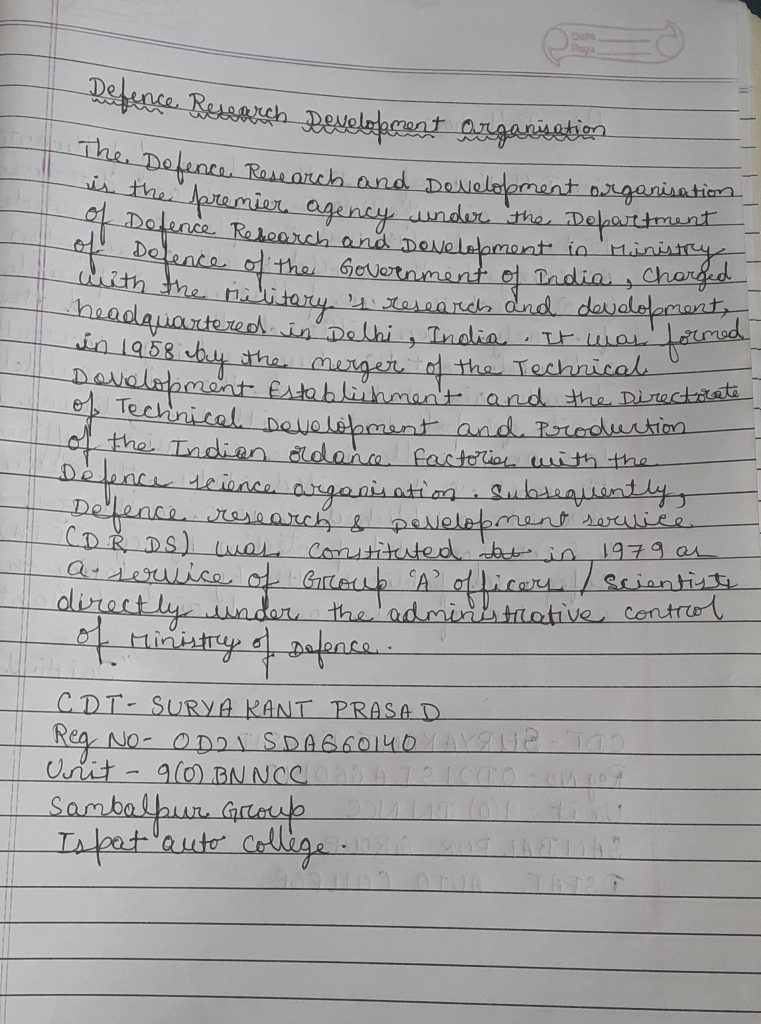 Date
Page
Defence Research Development organisation
The Defence Research and Development organisation
is the premier agency under the Department
of Defence Research and Development in Ministry
of Defence of the Government of India, Charged
with the military's research and development,
headquartered in Delhi, India. It was formed
in 1958 by the merger of the Technical
Development Establishment and the Directorate
of Technical Development and Production
of the Indian ordance Factories with the
Defence science organisation. Subsequently,
Defence research & Development service
(DRDS) was constituted in 1979 as
a service of Group 'A' officers / Scientists
directly under the administrative control
of Ministry of Defence.
CDT- SURYA KANT PRASAD
Reg NO- OD21SDA660140
Unit - 9(O) BN NCC
Sambalpur Group
Ispat auto college.